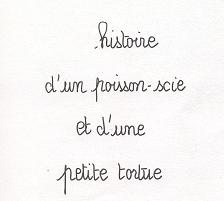 histoire
d'un poisson-scie
et d'une
petite tortue